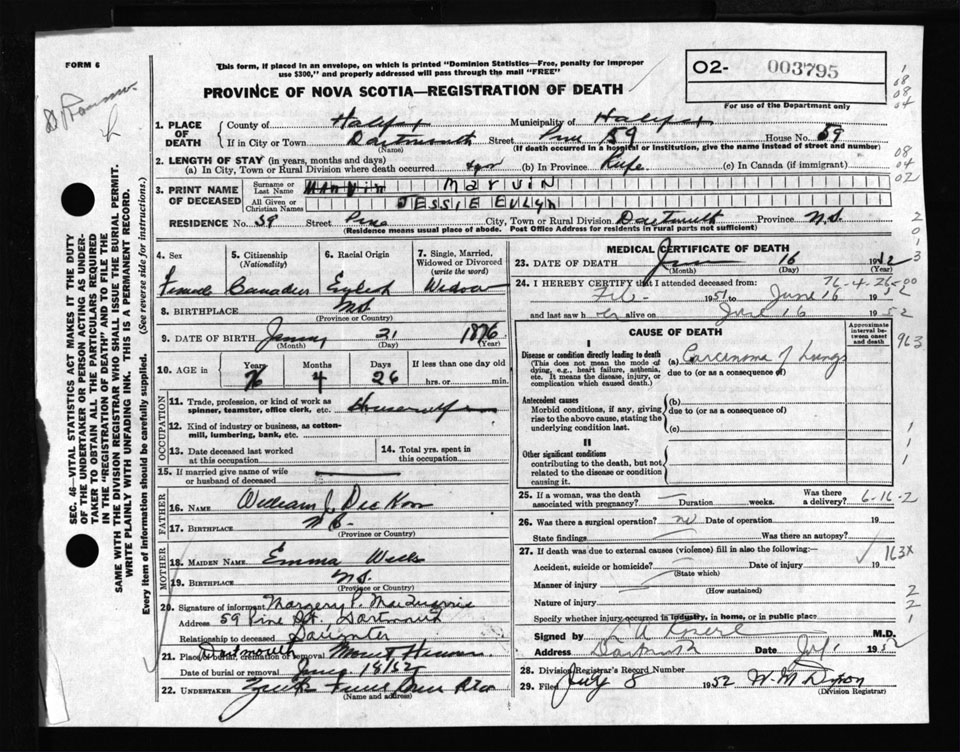 FORM 6
This form, if placed in an envelope, on which is printed "Dominion Statistics—Free, penalty for improper
use $300," and properly addressed will pass through the mail "FREE"
02- 003795
For use of the Department only
PROVINCE OF NOVA SCOTIA—REGISTRATION OF DEATH
1. PLACE OF DEATH
County of Halifax Municipality of Halifax
If in City or Town Dartmouth Street Pine 59 House No. 59
(Name) (If death occurred in a hospital or institution, give the name instead of street and number)
2. LENGTH OF STAY (in years, months and days)
(a) In City, Town or Rural Division where death occurred (b) In Province Life (c) In Canada (if immigrant)
3. PRINT NAME OF DECEASED
Surname or Last Name MARVIN
All Given or Christian Names JESSIE EVLYN
RESIDENCE No. 59 Street Pine City, Town or Rural Division Dartmouth Province N.S.
(Residence means usual place of abode. Post Office Address for residents in rural parts not sufficient)
4. Sex
Female
5. Citizenship
(Nationality)
Canadian
6. Racial Origin
English
7. Single, Married, Widowed or Divorced
(write the word)
Widow
8. BIRTHPLACE N.S.
(Province or Country)
9. DATE OF BIRTH January 21 1876
(Month) (Day) (Year)
10. AGE in
Years Months Days If less than one day old
76 4 26 hrs. or min.
OCCUPATION
11. Trade, profession, or kind of work as
spinner, teamster, office clerk, etc. Housewife
12. Kind of industry or business, as cotton-
mill, lumbering, bank, etc.
13. Date deceased last worked
at this occupation
14. Total yrs. spent in
this occupation
15. If married give name of wife
or husband of deceased
FATHER
16. Name William J.
17. BIRTHPLACE
(Province or Country)
MOTHER
18. MAIDEN NAME Emma Weeks
19. BIRTHPLACE N.S.
(Province or Country)
20. Signature of informant Margery P.
Address 59 Pine St. Dartmouth
Relationship to deceased Daughter
21. Place of burial, cremation or removal Dartmouth Mount Hermon
Date of burial or removal June 18/52
22. UNDERTAKER
(Name and address)
MEDICAL CERTIFICATE OF DEATH
23. DATE OF DEATH June 16 1952
(Month) (Day) (Year)
76-4-26-00
24. I HEREBY CERTIFY that I attended deceased from:
Feb. 1951 to June 16 1952
and last saw her alive on June 16 1952
CAUSE OF DEATH
Approximate interval between onset and death
I
Disease or condition directly leading to death
(This does not mean the mode of
dying, e.g., heart failure, asthenia,
etc. It means the disease, injury, or
complication which caused death.)
(a) Carcinoma of Lungs
due to (or as a consequence of)
Antecedent causes
Morbid conditions, if any, giving
rise to the above cause, stating the
underlying condition last.
(b)
due to (or as a consequence of)
(c)
II
Other significant conditions
contributing to the death, but not
related to the disease or condition
causing it.
25. If a woman, was the death
associated with pregnancy? Duration weeks. Was there
a delivery?
6-16-2
26. Was there a surgical operation? no Date of operation 19
State findings Was there an autopsy?
27. If death was due to external causes (violence) fill in also the following:— 163X
Accident, suicide or homicide? Date of injury 19
(State which)
Manner of injury
(How sustained)
Nature of injury
Specify whether injury occurred in industry, in home, or in public place
Signed by M.D.
Address Dartmouth Date July 1952
28. Division Registrar's Record Number
29. Filed July 8 1952 W. M. Dyson
(Division Registrar)
SEC. 46—VITAL STATISTICS ACT MAKES IT THE DUTY
OF THE UNDERTAKER OR PERSON ACTING AS UNDER-
TAKER TO OBTAIN ALL THE PARTICULARS REQUIRED
IN THE "REGISTRATION OF DEATH" AND TO FILE THE
SAME WITH THE DIVISION REGISTRAR WHO SHALL ISSUE THE BURIAL PERMIT.
WRITE PLAINLY WITH UNFADING INK. THIS IS A PERMANENT RECORD.
Every item of information should be carefully supplied. (See reverse side for instructions.)